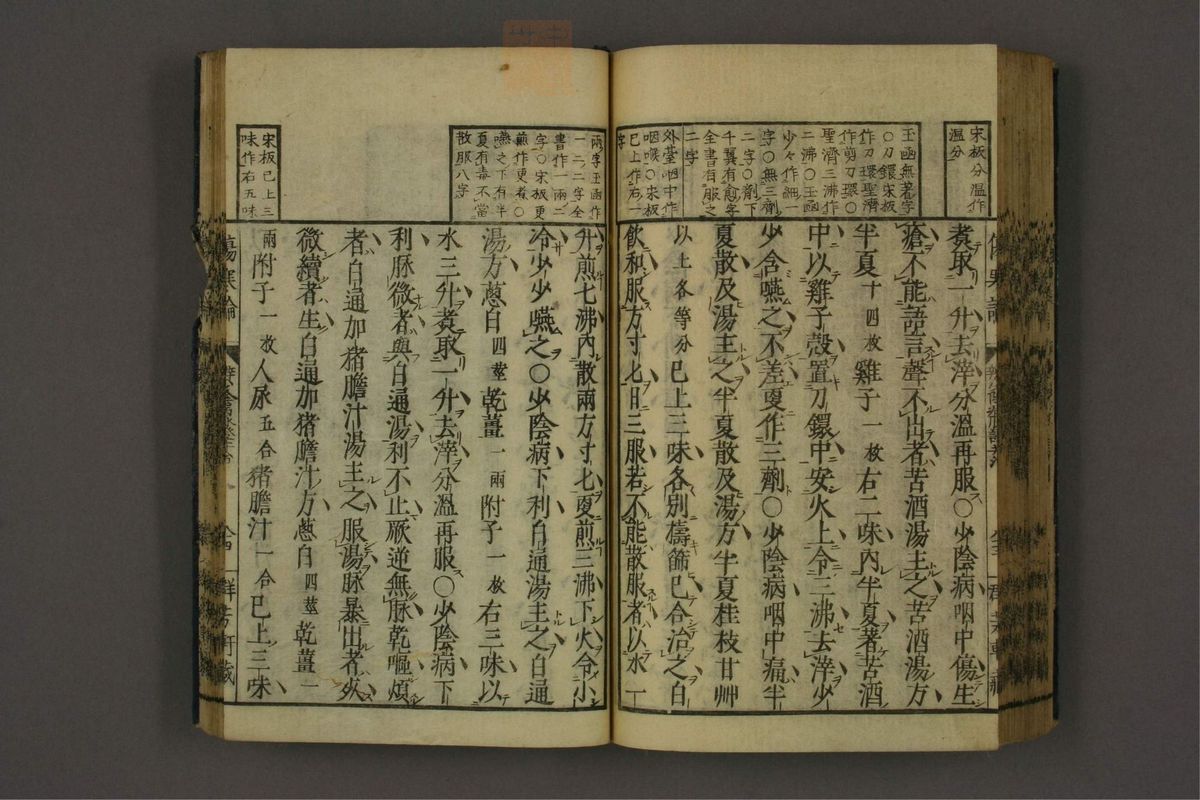 宋板分溫作
溫分
玉函無著字
○刀鐶宋板
作刀環聖濟
作剪刀環○
聖濟三沸作
二沸○玉函
少々作細一
字○無三劑
二字○劑下
千翼有愈字
全書有服之
二字
外臺咽中作
咽喉○宋板
已上作右一
字
煑取一升去滓分溫再服○少陰病咽中傷生
瘡不能語言聲不出者苦酒湯主之苦酒湯方
半夏十四枚雞子一枚右二味內半夏著苦酒
中以雞子殼置刀鐶中安火上令三沸去滓少
少含嚥之不差更作三劑○少陰病咽中痛半
夏散及湯主之半夏散及湯方半夏桂枝甘艸
以上各等分已上三味各別擣篩已合治之白
飮和服方寸七日三服若不能散服者以水一
兩字玉函作
一二二字全
書作一兩二
字○宋板更
煎作更煮○
嚥之下有半
夏有毒不當
散服八字
宋板已上三
味作右五味
升煎七沸內散兩方寸七更煎三沸下火令小
冷少少嚥之○少陰病下利白通湯主之白通
湯方蔥白四莖乾薑一兩附子一枚右三味以
水三升煑取一升去滓分溫再服○少陰病下
利脉微者與白通湯利不止厥逆無脉乾嘔煩
者白通加猪膽汁湯主之服湯脉暴出者死
微續者生白通加猪膽汁方蔥白四莖乾薑一
兩附子一枚人尿五合猪膽汁一合已上三味
傷寒論